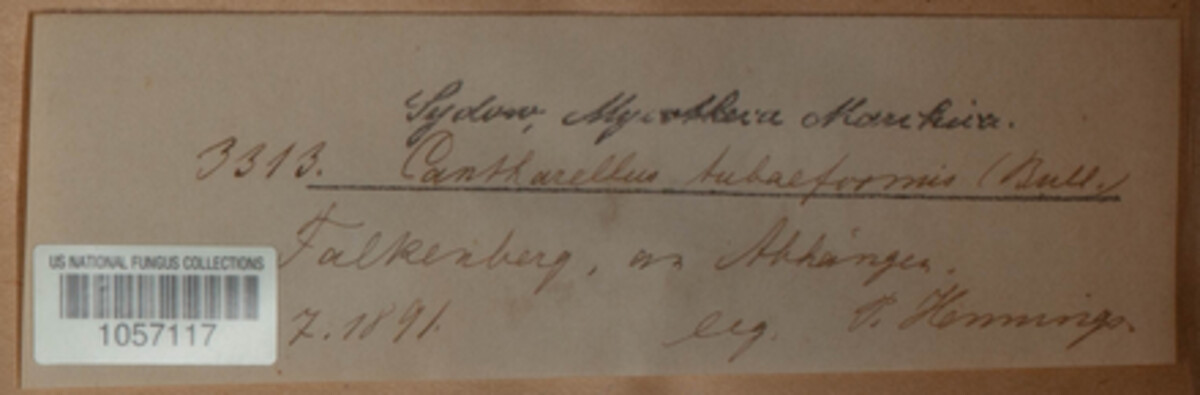 Sydow, Mycotheca Marchica.
3313. Cantharellus tubaeformis (Bull.)
Falkenberg, an Abhängen.
7. 1891.
leg. P. Hennings.
US NATIONAL FUNGUS COLLECTIONS
1057117